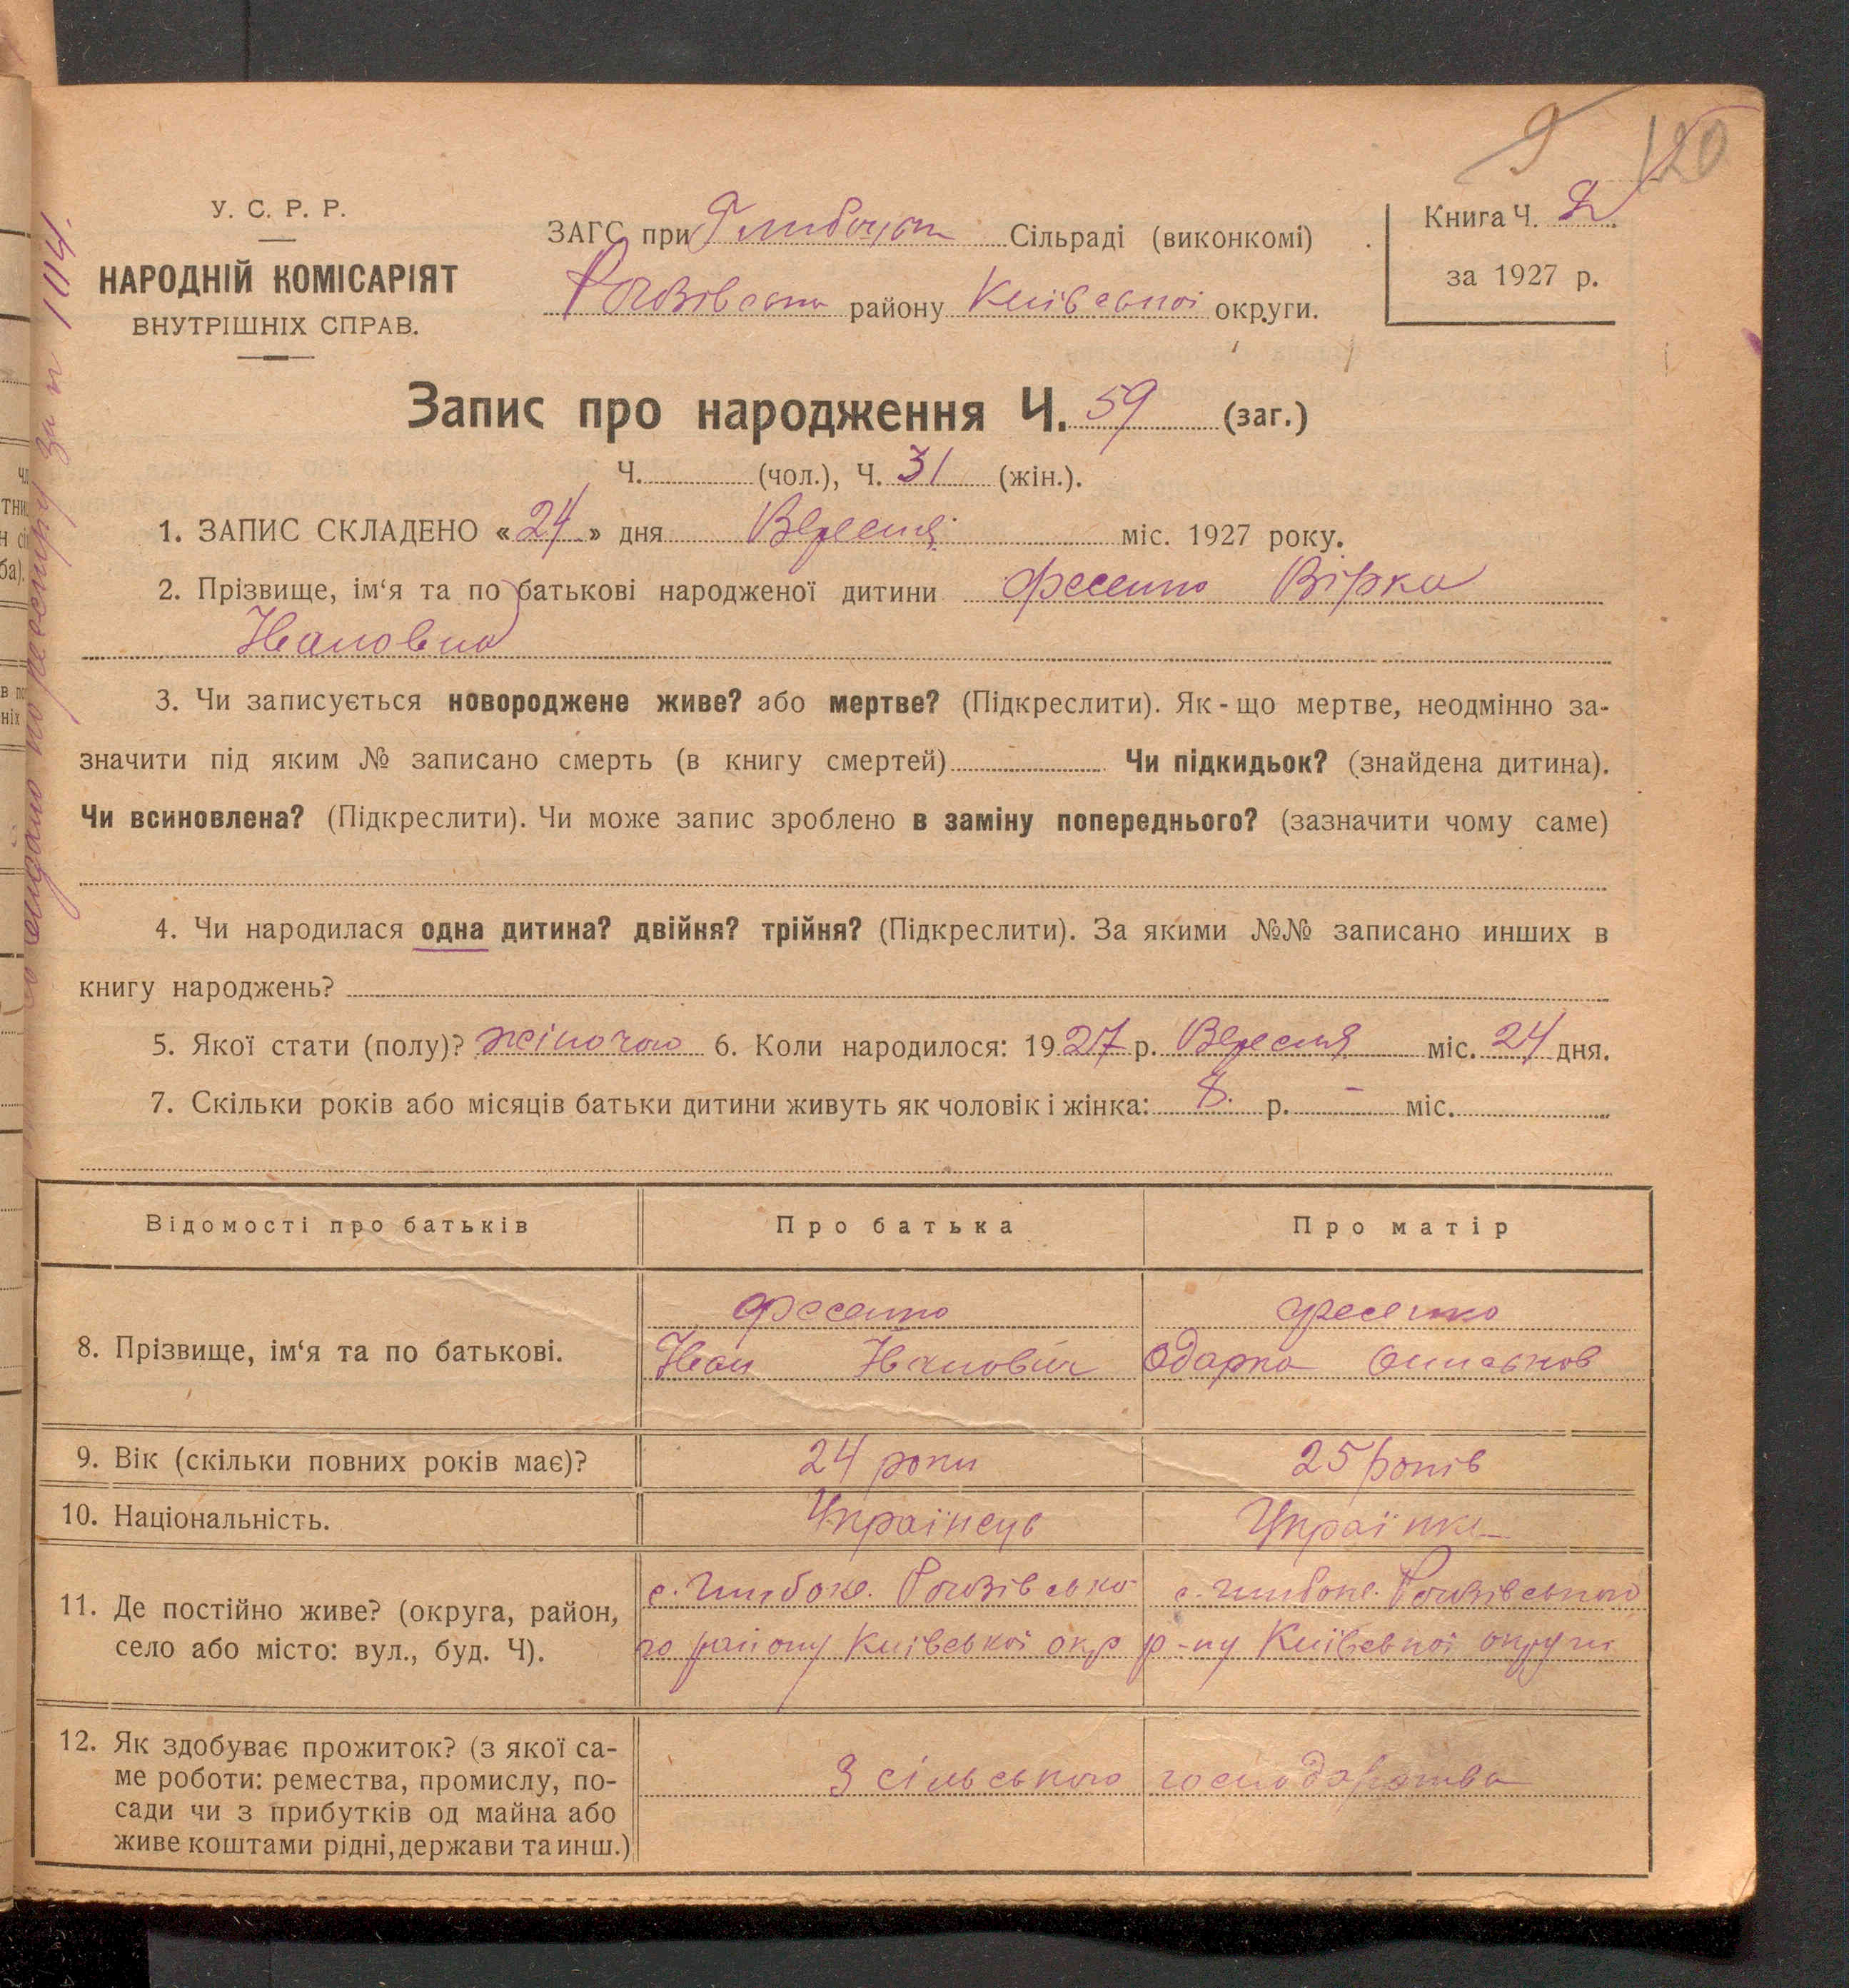 9 120
У. С. Р. Р.
НАРОДНІЙ КОМІСАРІЯТ
ВНУТРІШНІХ СПРАВ.
ЗАГС при Глибоцьк Сільраді (виконкомі)
району Київської округи.
Книга Ч. 2
за 1927 р.
Запис про народження Ч. 59 (заг.)
Ч. (чол.), Ч. 31 (жін.).
1. ЗАПИС СКЛАДЕНО «24» дня Вересня міс. 1927 року.
2. Прізвище, ім‘я та по батькові народженої дитини Фесенко Вірка
Івановна
3. Чи записується новороджене живе? або мертве? (Підкреслити). Як-що мертве, неодмінно за-
значити під яким № записано смерть (в книгу смертей) Чи підкидьок? (знайдена дитина).
Чи всиновлена? (Підкреслити). Чи може запис зроблено в заміну попереднього? (зазначити чому саме)
4. Чи народилася одна дитина? двійня? трійня? (Підкреслити). За якими №№ записано инших в
книгу народжень?
5. Якої стати (полу)? жіночою 6. Коли народилося: 1927 р. Вересня міс. 24 дня.
7. Скільки років або місяців батьки дитини живуть як чоловік і жінка: 8. р. – міс.
Відомості про батьків Про батька Про матір
8. Прізвище, ім‘я та по батькові.
Фесенко
Іван Іванович
Фесенко
Одарка
9. Вік (скільки повних років має)? 24 роки 25 років
10. Національність. Українець Українка
11. Де постійно живе? (округа, район,
село або місто: вул., буд. Ч).
с. Глибоке.
го району Київської окр
с. Глибоке.
р-ну Київської округи
12. Як здобуває прожиток? (з якої са-
ме роботи: ремества, промислу, по-
сади чи з прибутків од майна або
живе коштами рідні, держави та инш.)
З сільського господарства
видано по реєстру за n 1114.